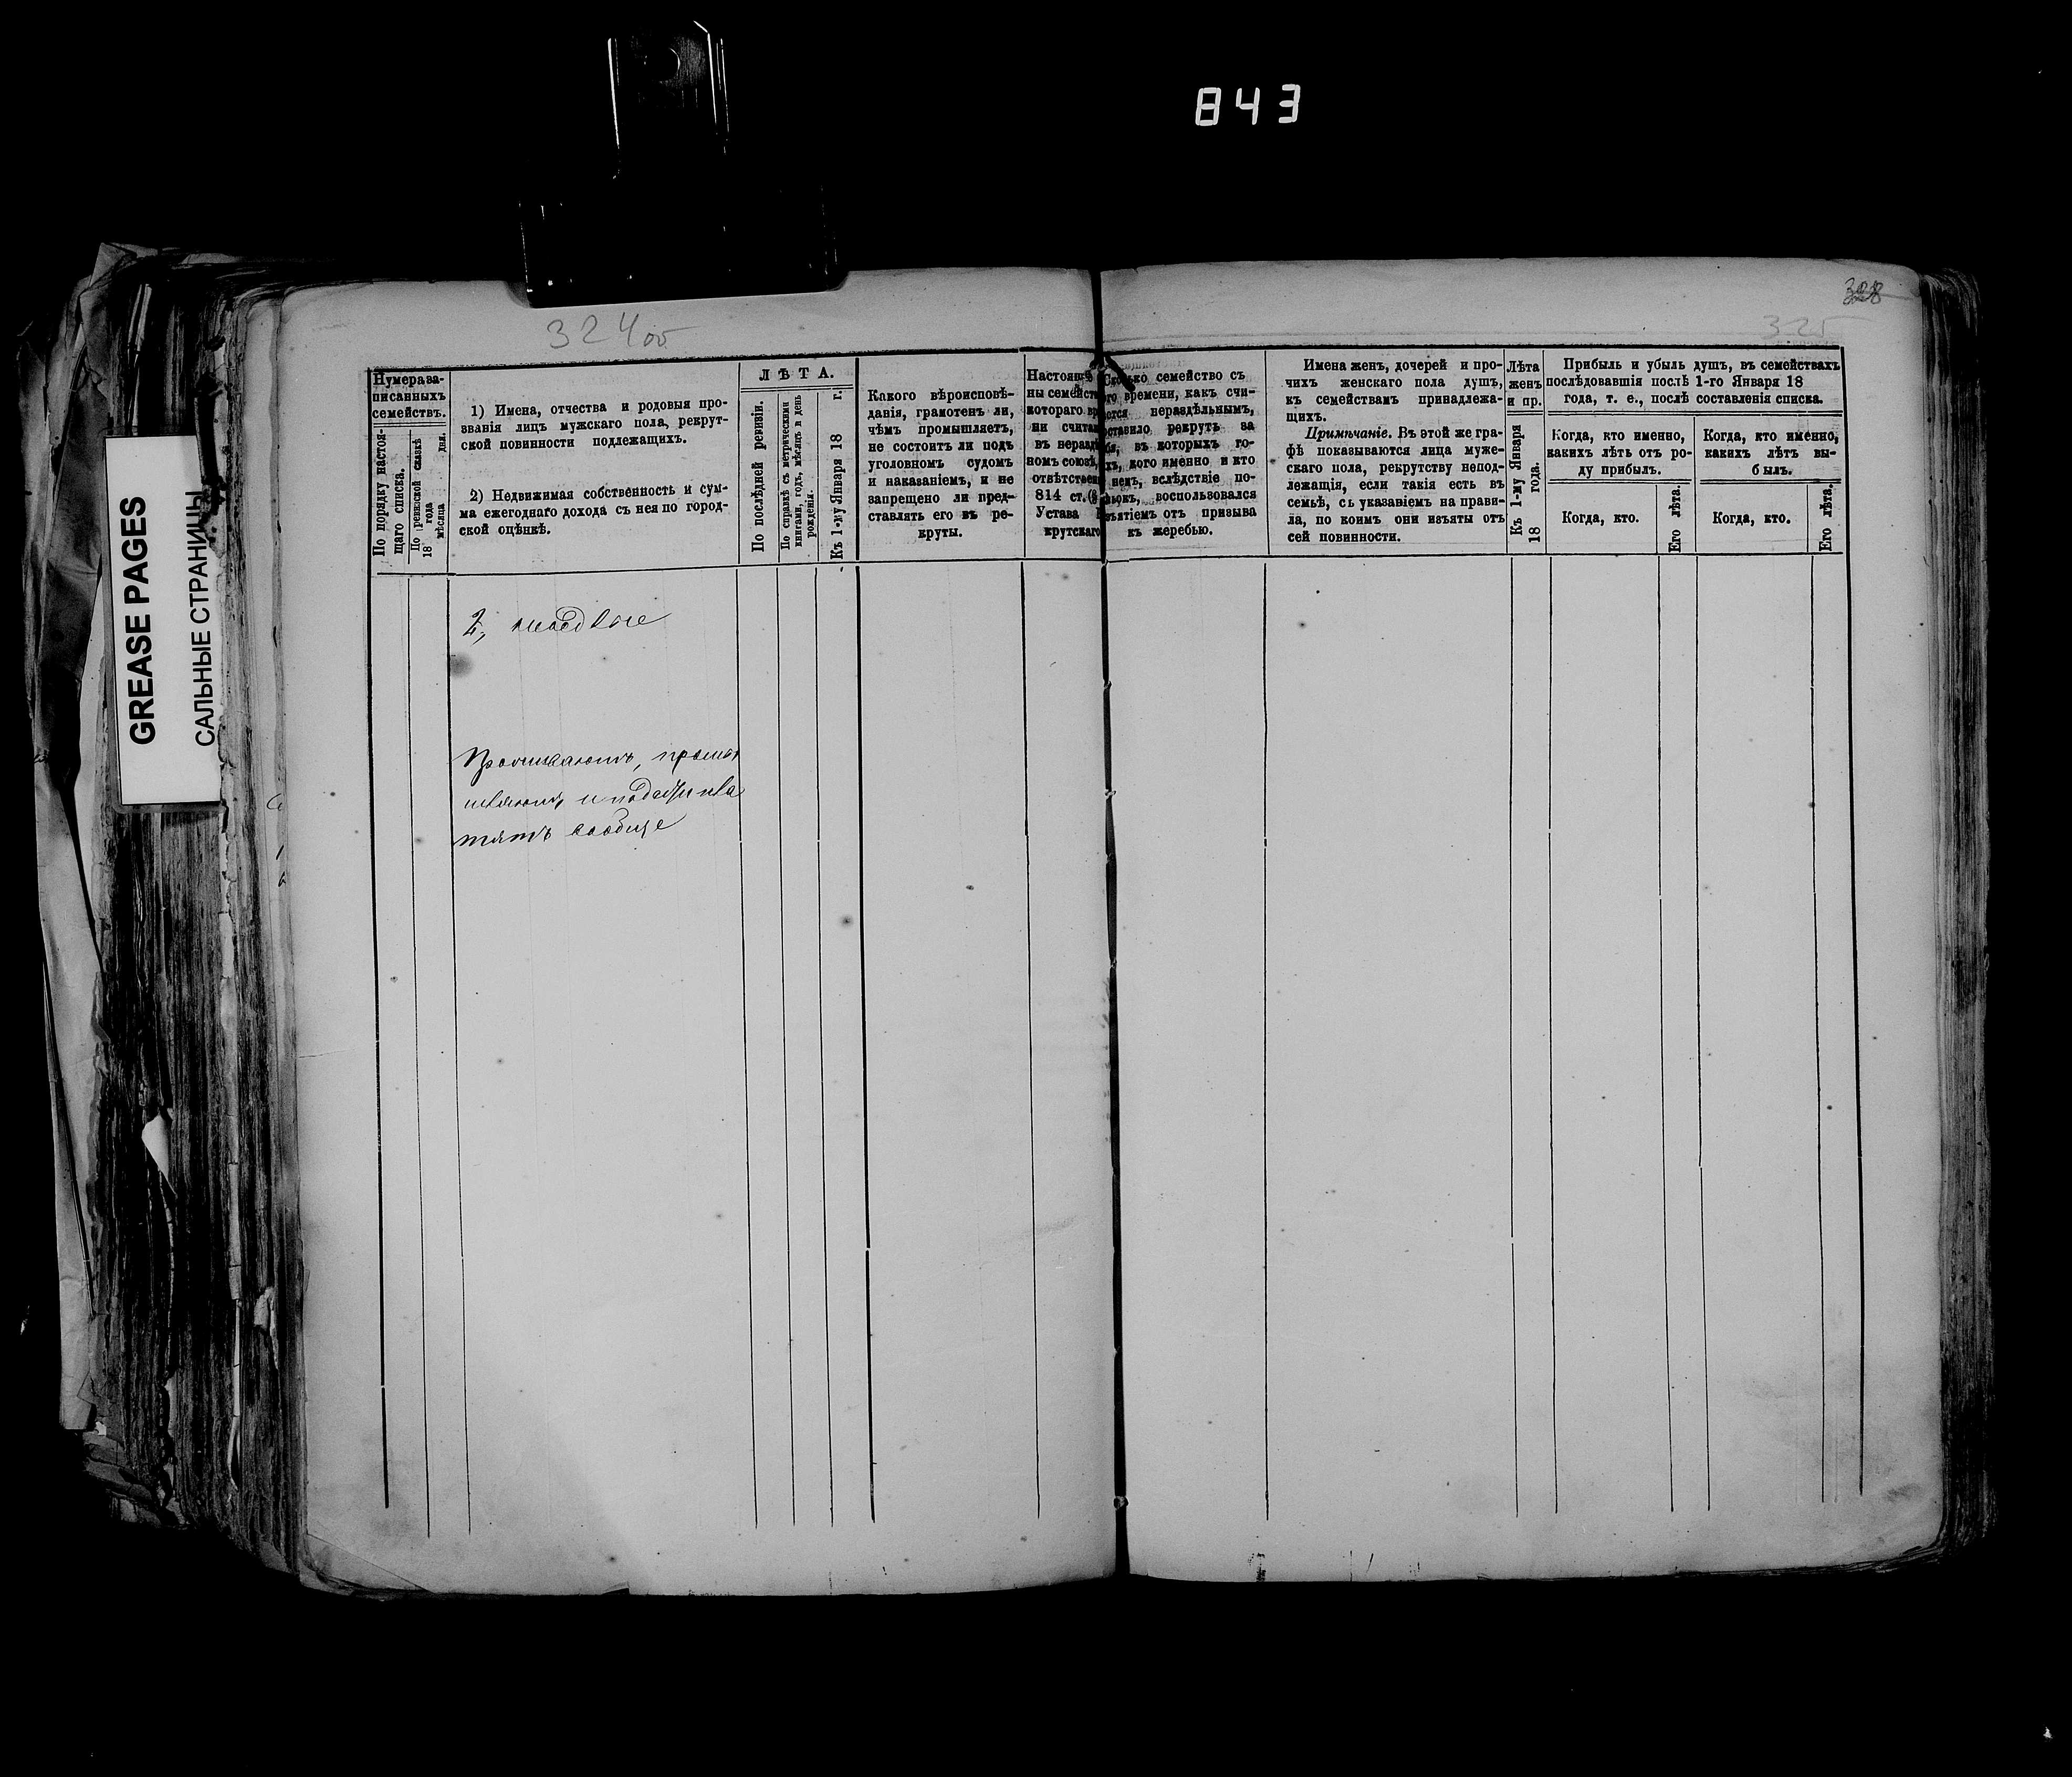 843
GREASE PAGES
САЛЬНЫЕ СТРАНИЦЫ
324 об
328
325
Нумера за-
писанныхъ
семействъ.
По порядку настоя-
щаго списка.
По ревизской сказкѣ
18 года
мѣсяца дня.
1) Имена, отчества и родовыя про-
званія лицъ мужскаго пола, рекрут-
ской повинности подлежащихъ.
2) Недвижимая собственность и сум-
ма ежегоднаго дохода съ нея по город-
ской оцѣнкѣ.
ЛѢТА.
По послѣдней ревизіи.
По справкѣ съ метрическими
книгами, годъ, мѣсяцъ и день
рожденія.
Къ 1-му Января 18 г.
Какого вѣроисповѣ-
данія, грамотенъ ли,
чѣмъ промышляетъ,
не состоитъ ли подъ
уголовномъ судомъ
и наказаніемъ, и не
запрещено ли пред-
ставлять его въ ре-
круты.
Настоящ
ны семейст
котораго вр
ни счита
въ неразд
номъ союзѣ,
отвѣтствен
814 ст.
Устава
крутскаго
Сколько семейство съ
го времени, какъ счи-
ается нераздѣльнымъ,
оставило рекрутъ за
бя, въ которыхъ го-
хъ, кого именно и кто
нея, вслѣдствіе по-
воспользовался
зъятіемъ отъ призыва
къ жеребью.
Имена женъ, дочерей и про-
чихъ женскаго пола душъ,
къ семействамъ принадлежа-
щихъ.
Примѣчаніе. Въ этой же гра-
фѣ показываются лица муже-
скаго пола, рекрутству непод-
лежащія, если такія есть въ
семьѣ, съ указаніемъ на прави-
ла, по коимъ они изъяты отъ
сей повинности.
Лѣта
женъ
и пр.
Къ 1-му Января
18 года.
Прибыль и убыль душъ, въ семействахъ
послѣдовавшія послѣ 1-го Января 18
года, т. е., послѣ составленія списка.
Когда, кто именно,
какихъ лѣтъ отъ ро-
ду прибылъ.
Когда, кто.
Его лѣта.
Когда, кто именно,
какихъ лѣтъ вы-
былъ.
Когда, кто.
Его лѣта.
2,
Проживаютъ, промы
шляютъ и подати пла
тятъ сообще